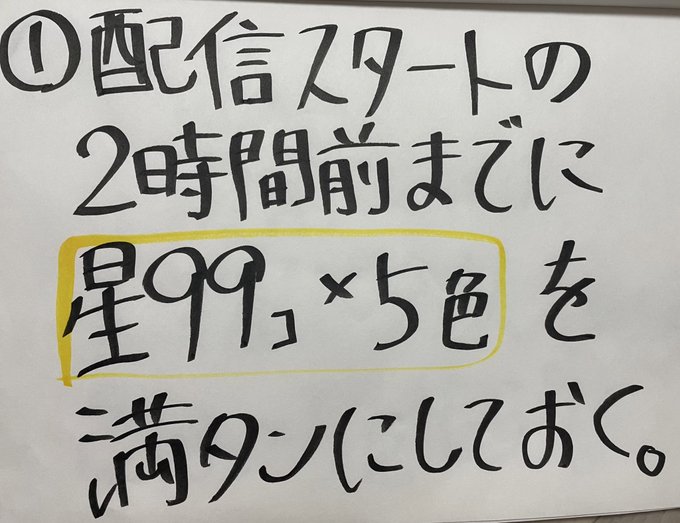 ①配信スタートの
2時間前までに
星99コ×5色を
満タンにしておく。